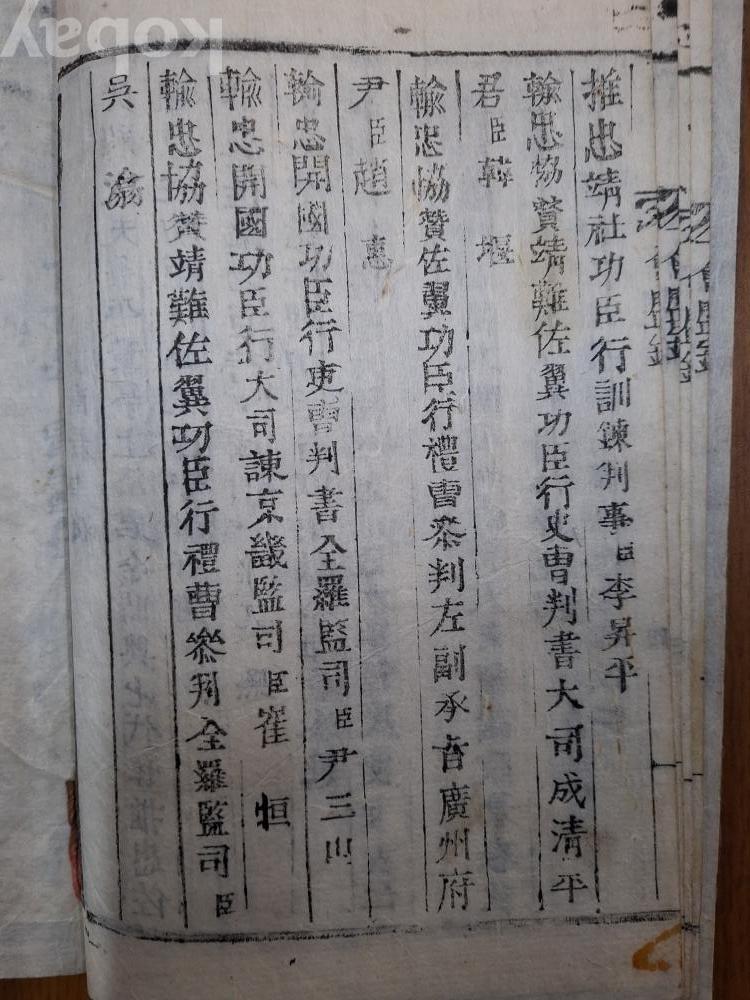 推忠靖社功臣行訓鍊判事臣李昇平
輸忠協贊靖難佐翼功臣行吏曺判書大司成清平
君臣韓堰
輸忠協贊佐翼功臣行禮曺叅判左副承旨廣州府
尹臣趙惠
輸忠開國功臣行吏曺判書全羅監司臣尹三山
輸忠開國功臣行大司諫京畿監司臣崔恒
輸忠協贊靖難佐翼功臣行禮曹叅判全羅監司臣
吳滃
會盟錄
會盟錄
kobay